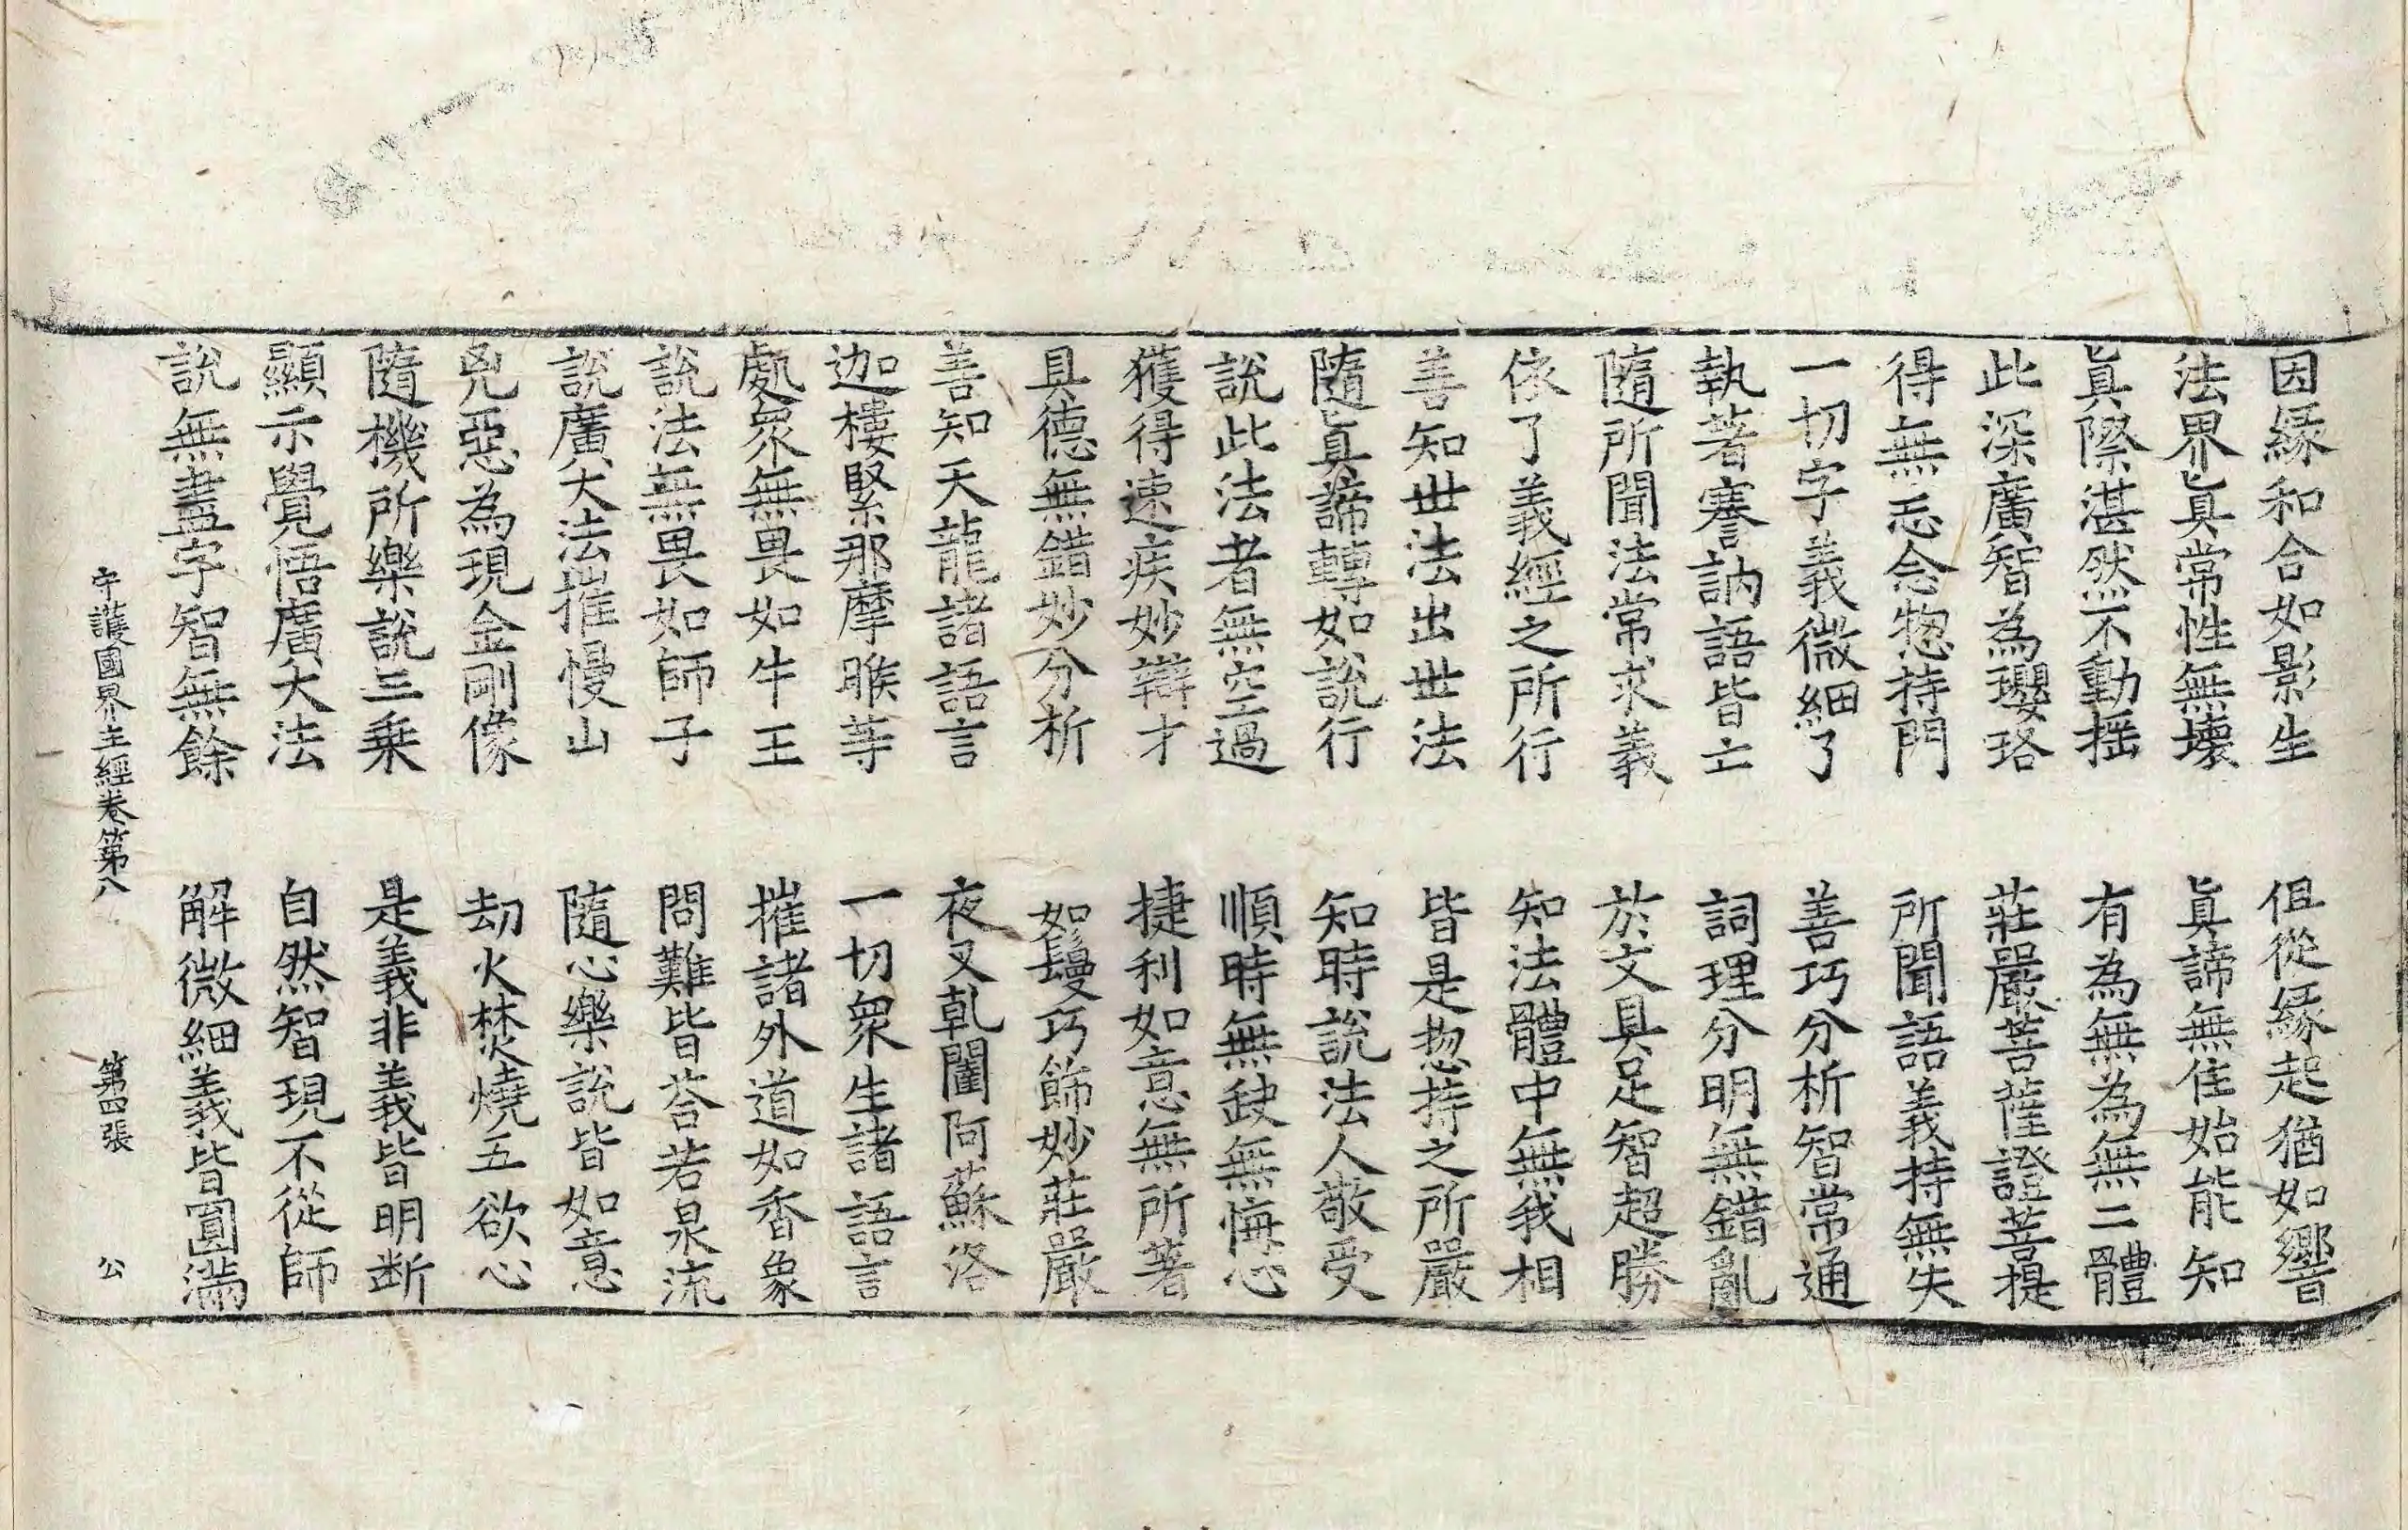 因緣和合如影生　但從緣起猶如響
法界眞常性無壞　眞諦無住始能知
眞際湛然不動揺　有為無為無二體
此深廣智為瓔珞　莊嚴菩薩證菩提
得無忘念惣持門　所聞語義持無失
一切字義微細了　善巧分析智常通
執著謇訥語皆亡　詞理分明無錯亂
隨所聞法常求義　於文具足智超勝
依了義經之所行　知法體中無我相
善知世法出世法　皆是惣持之所嚴
隨眞諦轉如說行　知時說法人敬受
說此法者無空過　順時無缺無悔心
獲得速疾妙辯才　捷利如意無所著
具德無錯妙分析　如鬘巧飾妙莊嚴
善知天龍諸語言　夜叉乹闥阿蘇洛
迦樓緊那摩睺等　一切衆生諸語言
處衆無畏如牛王　摧諸外道如香象
說法無畏如師子　問難皆荅若泉流
說廣大法摧慢山　隨心樂說皆如意
兇惡為現金剛像　劫火焚燒五欲心
隨機所樂說三乗　是義非義皆明断
顯示覺悟廣大法　自然智現不從師
說無盡字智無餘　解微細義皆圓滿
守護國界主經卷第八　第四張　公